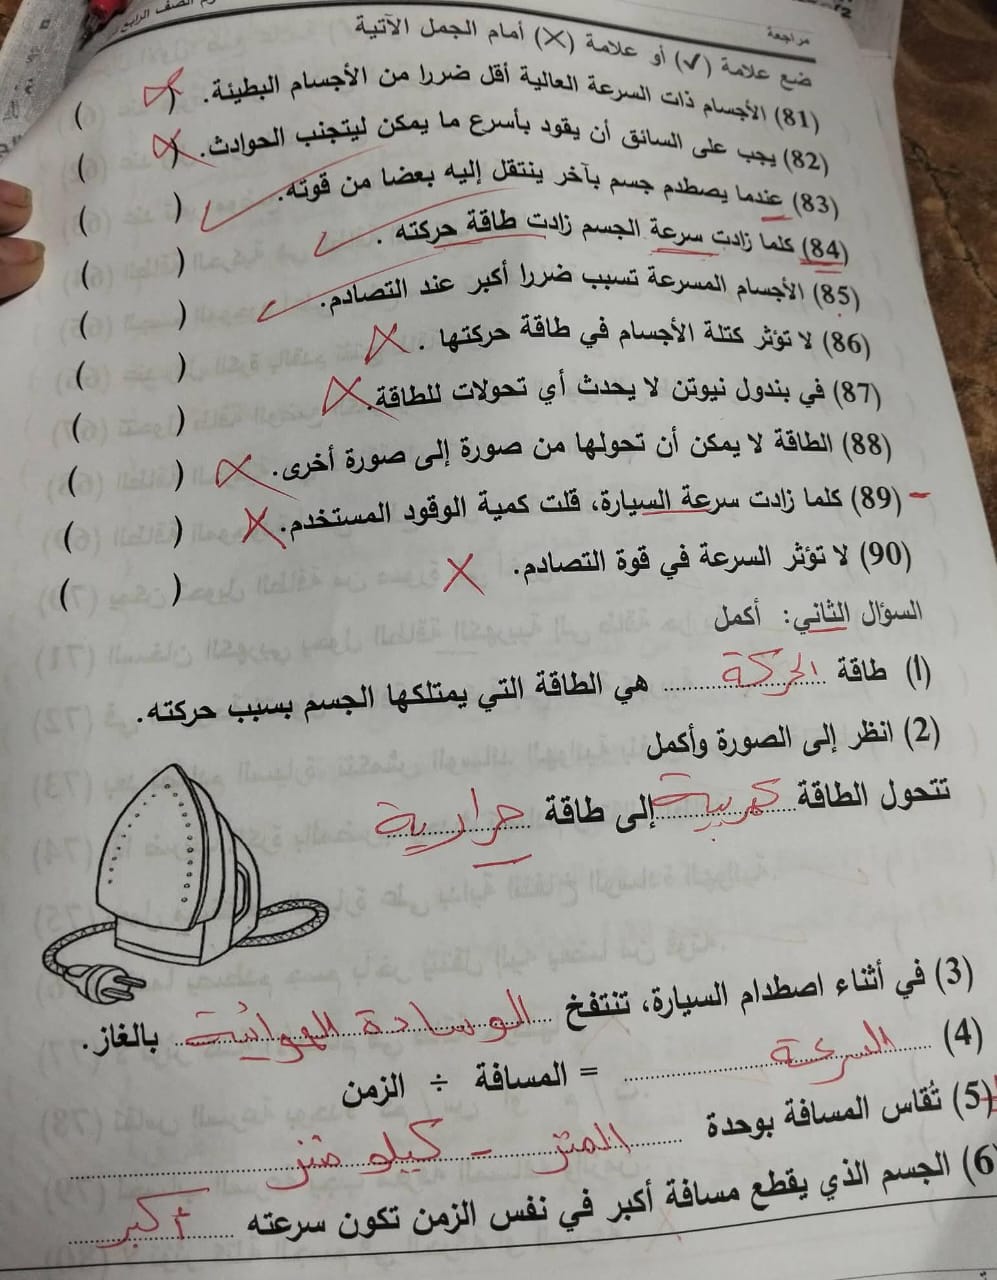 مراجعة
ضع علامة (✓) أو علامة (X) أمام الجمل الآتية
(81) الأجسام ذات السرعة العالية أقل ضررا من الأجسام البطيئة. ( X )
(82) يجب على السائق أن يقود بأسرع ما يمكن ليتجنب الحوادث. ( X )
(83) عندما يصطدم جسم بآخر ينتقل إليه بعضا من قوته. ✓ ( )
(84) كلما زادت سرعة الجسم زادت طاقة حركته . ✓ ( )
(85) الأجسام المسرعة تسبب ضررا أكبر عند التصادم. ✓ ( )
(86) لا تؤثر كتلة الأجسام في طاقة حركتها . X ( )
(87) في بندول نيوتن لا يحدث أي تحولات للطاقة. X ( )
(88) الطاقة لا يمكن أن تحولها من صورة إلى صورة أخرى. X ( )
(89) كلما زادت سرعة السيارة، قلت كمية الوقود المستخدم. X ( )
(90) لا تؤثر السرعة في قوة التصادم. X ( )
السؤال الثاني: أكمل
(1) طاقة الحركة هي الطاقة التي يمتلكها الجسم بسبب حركته.
(2) انظر إلى الصورة وأكمل
تتحول الطاقة كهربية إلى طاقة حرارية
(3) في أثناء اصطدام السيارة، تنتفخ الوسادة الهوائية بالغاز.
(4) السرعة = المسافة ÷ الزمن
(5) تُقاس المسافة بوحدة المتر - كيلو متر
(6) الجسم الذي يقطع مسافة أكبر في نفس الزمن تكون سرعته أكبر